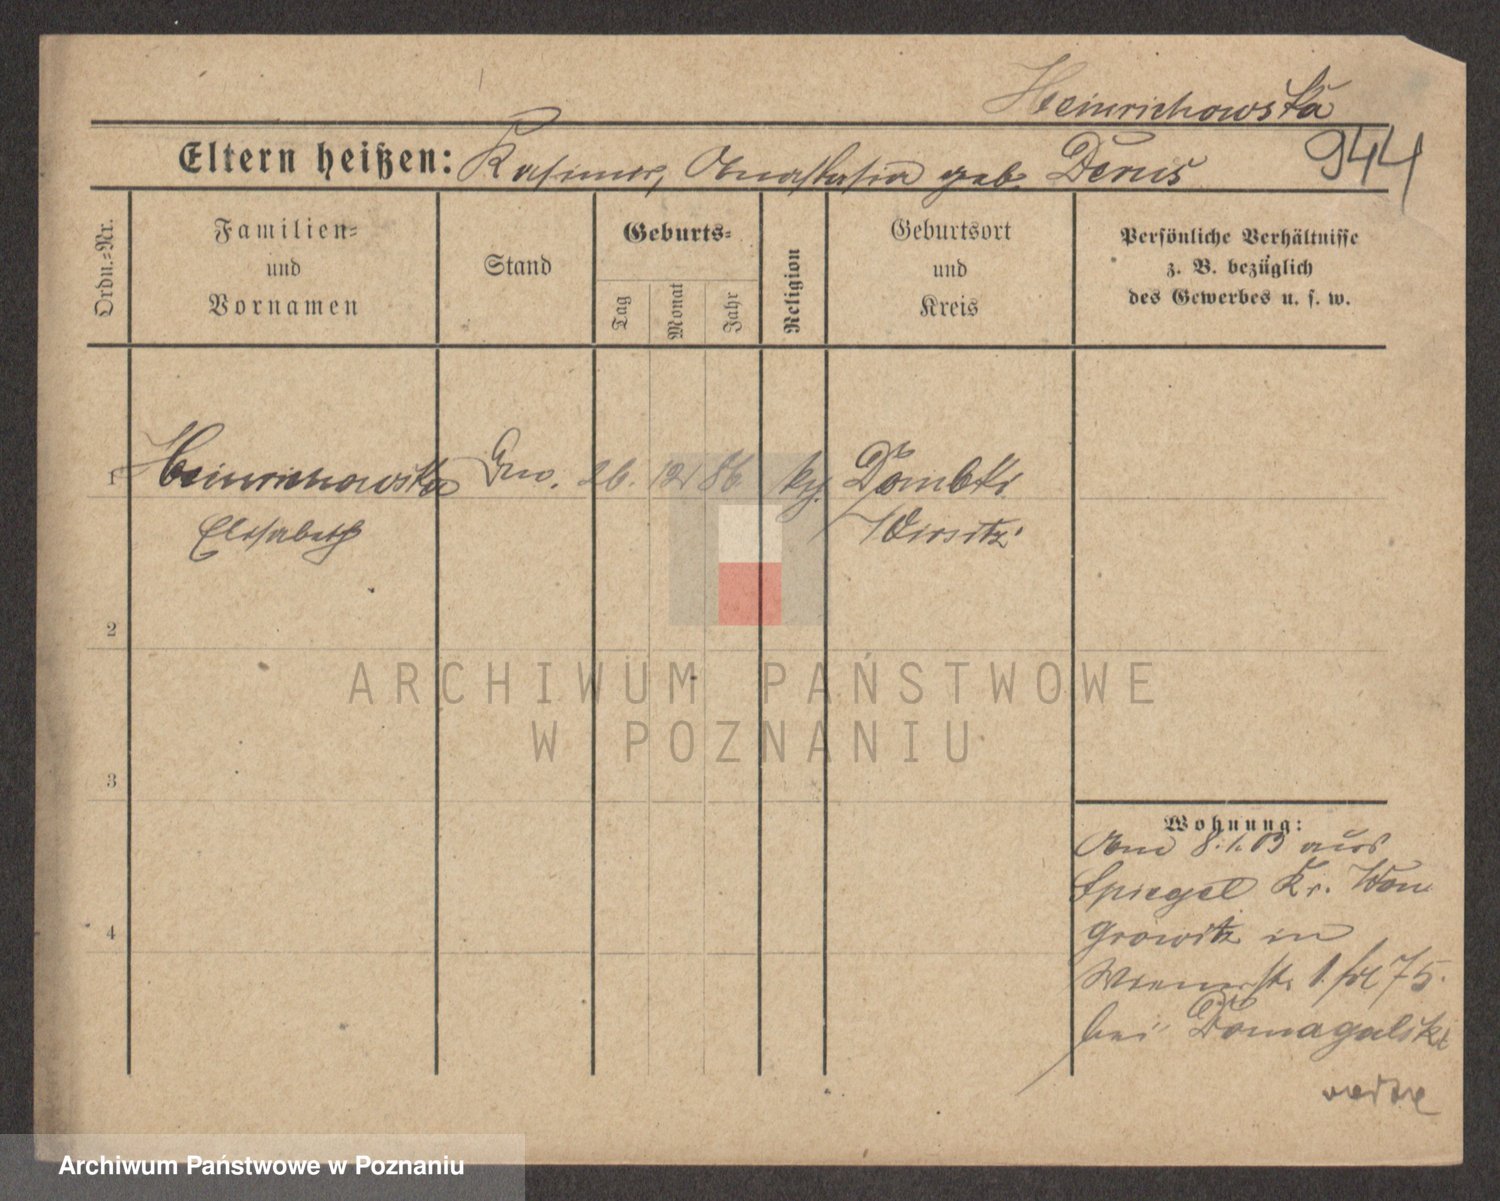 Heinrichowska
944
Eltern heißen: Kasimir, Anastasia geb. Derus
Ordn.-Nr.
Familien-
und
Vornamen
Stand
Geburts-
Tag
Monat
Jahr
Religion
Geburtsort
und
Kreis
Persönliche Verhältnisse
z. B. bezüglich
des Gewerbes u. s. w.
1 Heinrichowska 26. 12 86 Dombki
Elisabeth Wirsitz
2
3
4
Wohnung:
Am 8.1.03 aus
Spiegel Kr. Won
growitz in
1
75.
bei Domagalski
ARCHIWUM PAŃSTWOWE
W POZNANIU
Archiwum Państwowe w Poznaniu